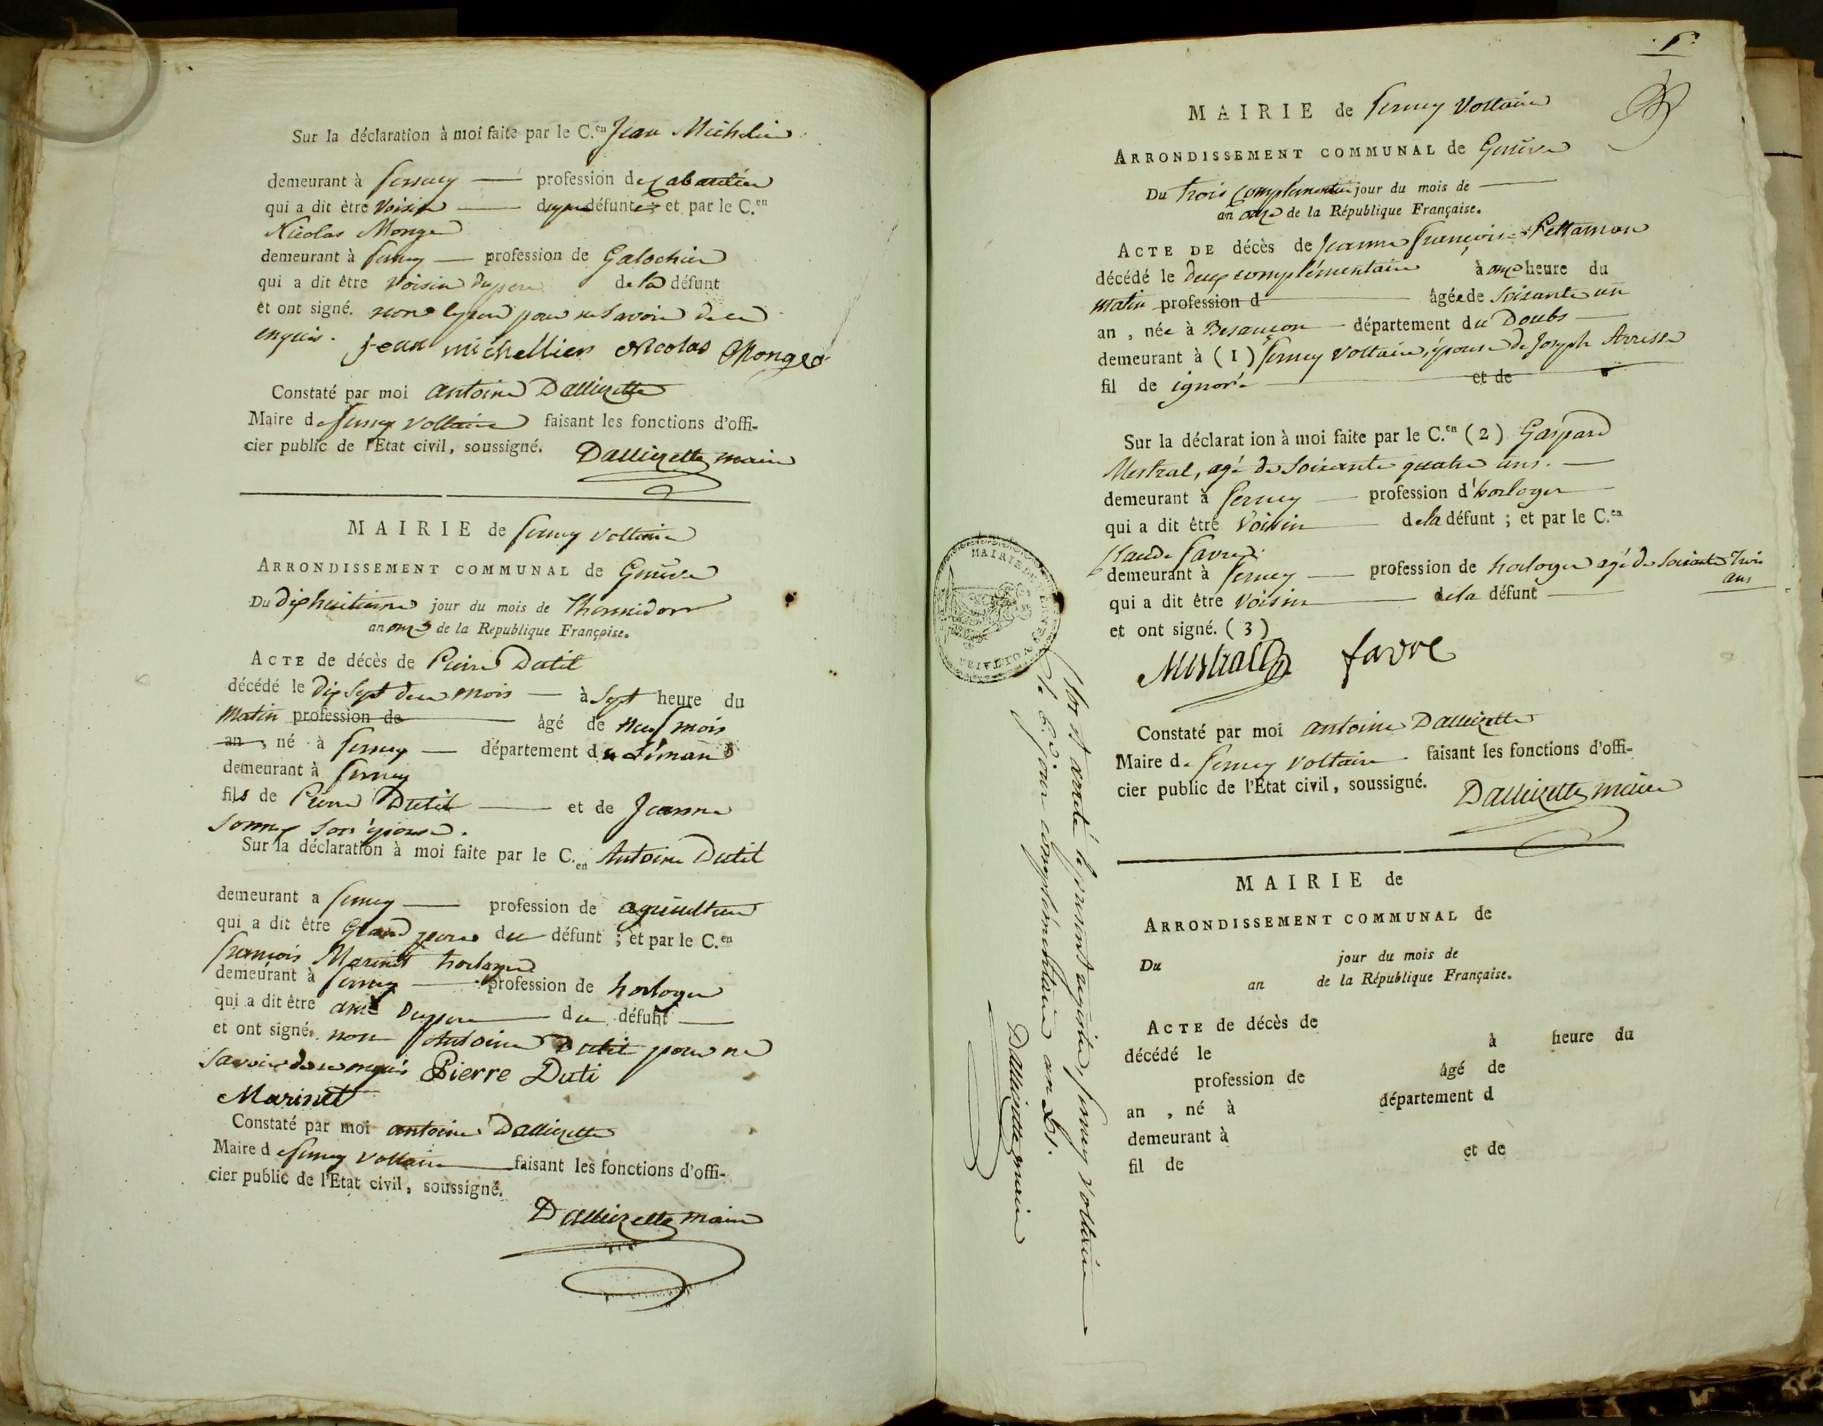 Sur la déclaration à moi faite par le C.en Jean Michelin
demeurant à Ferney — profession de Cabaretier
qui a dit être Voisin — du père défunt et par le C.en
Nicolas Monge
demeurant à Ferney — profession de Galochier
qui a dit être Voisin du père de la défunt
et ont signé. non le père pour ne savoir de ce
enquis. jean michellien Nicolas Monge
Constaté par moi antoine Dallizette
Maire de Ferney Voltaire faisant les fonctions d'offi-
cier public de l'Etat civil, soussigné. Dallizette maire
MAIRIE de Ferney Voltaire
ARRONDISSEMENT COMMUNAL de Genève
Du dixhuitieme jour du mois de Thermidor
an onze de la République Françoise.
ACTE de décès de Pierre Dutil
décédé le dix sept de ce mois — à Sept heure du
matin profession de — âgé de neuf mois
an, né à Ferney — département du Léman
demeurant à Ferney
fils de Pierre Dutil — et de Jeanne
son épouse.
Sur la déclaration à moi faite par le C.en Antoine Dutil
demeurant a Ferney — profession de agriculteur
qui a dit être Grand pere du défunt ; et par le C.en
françois Marinet horloger
demeurant à Ferney — profession de horloger
qui a dit être ami du pere — du défunt —
et ont signé. non Antoine Dutil pour ne
savoir de ce enquis Pierre Duti
Marinet
Constaté par moi antoine Dallizette
Maire de Ferney Voltaire faisant les fonctions d'offi-
cier public de l'Etat civil, soussigné.
Dallizette maire
MAIRIE de Ferney Voltaire
ARRONDISSEMENT COMMUNAL de Genève
Du trois Complémentaire jour du mois de —
an onze de la République Française.
ACTE DE décès de Jeanne Françoise
décédé le deux complémentaire à onze heure du
matin profession d — âgée de soixante un
an, née à Besançon — département du Doubs —
demeurant à (1) Ferney Voltaire, épouse de Joseph
fil de ignoré — et de
Sur la déclarat ion à moi faite par le C.en (2) Gaspard
Mestral, agé de soixante quatre ans. —
demeurant à Ferney — profession d'horloger —
qui a dit être Voisin — de la défunt ; et par le C.en
Claude Favre
demeurant à Ferney — profession de horloger agé de soixante trois
ans
qui a dit être Voisin — de la défunt —
et ont signé. (3)
Mestral favre
Constaté par moi antoine Dallizette
Maire de Ferney Voltaire faisant les fonctions d'offi-
cier public de l'Etat civil, soussigné. Dallizette maire
MAIRIE DE FERNEY VOLTAIRE
Clos et arrêté le présent registre, Ferney Voltaire
le 6e jour complémentaire an 11.
Dallizette maire
MAIRIE de
ARRONDISSEMENT COMMUNAL de
Du jour du mois de
an de la République Française.
ACTE de décès de
décédé le à heure du
profession de âgé de
an , né à département d
demeurant à
fil de et de